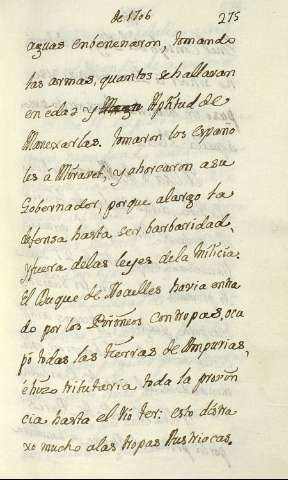 de 1706 275
aguas enbenenaron, tomando
las armas, quantos se hallavan
en edad y Aptitud de
Manexarlas. tomaron los Españo
les á Moravet, y ahorcaron a su
Governador, porque alargo la
defensa hasta ser barbaridad,
y fuera de las leyes de la Milicia.
El Duque de Noailles havia entra
do por los Pirineos con tropas, ocu
pó todas las tierras de Ampurias,
é hizo tributaria toda la provin
cia hasta el Rio ter: esto distra
xo mucho a las tropas Austriacas,